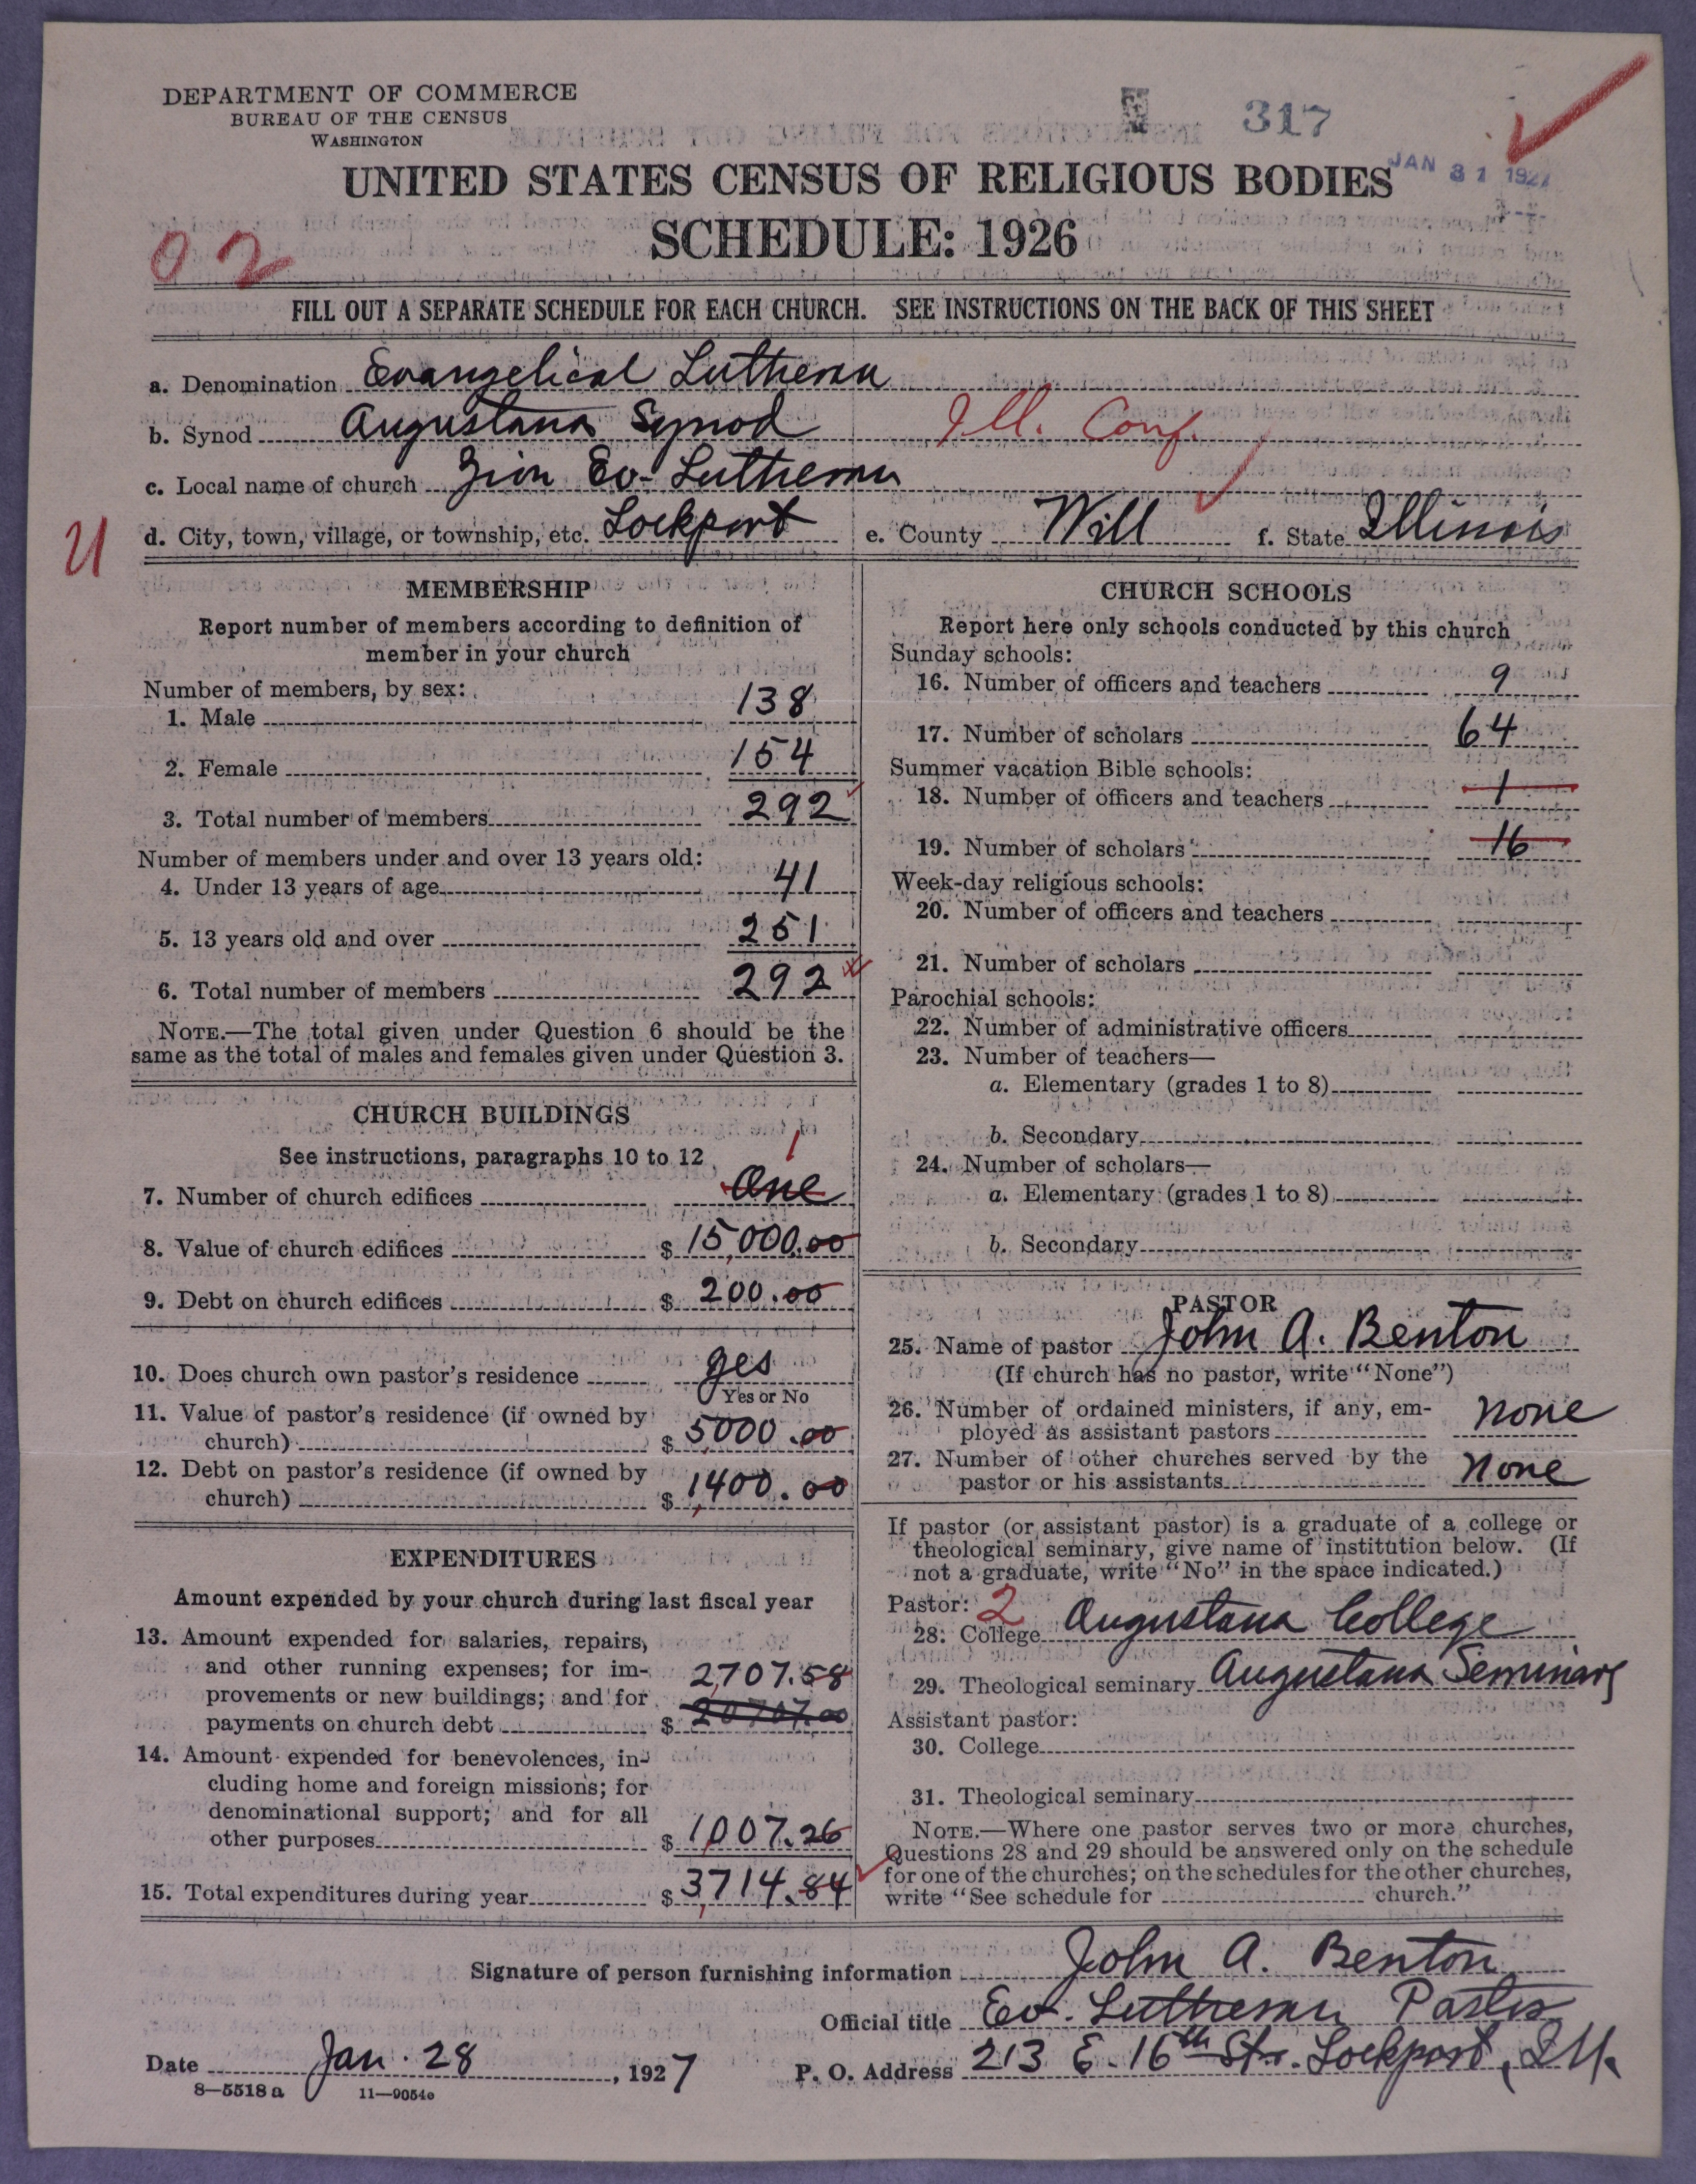 DEPARTMENT OF COMMERCE
BUREAU OF THE CENSUS
WASHINGTON
317
JAN 31 1927
UNITED STATES CENSUS OF RELIGIOUS BODIES
SCHEDULE: 1926
02
FILL OUT A SEPARATE SCHEDULE FOR EACH CHURCH. SEE INSTRUCTIONS ON THE BACK OF THIS SHEET
a. Denomination Evangelical Lutheran
b. Synod Augustana Synod Ill. Conf.
c. Local name of church Zion Ev. Lutheran
U
d. City, town, village, or township, etc. Lockport e. County Will f. State Illinois
MEMBERSHIP
Report number of members according to definition of
member in your church
Number of members, by sex:
1. Male 138
2. Female 154
3. Total number of members 292
Number of members under and over 13 years old:
4. Under 13 years of age 41
5. 13 years old and over 251
6. Total number of members 292
NOTE.—The total given under Question 6 should be the
same as the total of males and females given under Question 3.
CHURCH BUILDINGS
See instructions, paragraphs 10 to 12
1
7. Number of church edifices One
8. Value of church edifices $ 15,000.00
9. Debt on church edifices $ 200.00
10. Does church own pastor's residence yes
Yes or No
11. Value of pastor's residence (if owned by
church) $ 5000.00
12. Debt on pastor's residence (if owned by
church) $ 1,400.00
EXPENDITURES
Amount expended by your church during last fiscal year
13. Amount expended for salaries, repairs,
and other running expenses; for im-
2,707.58
provements or new buildings; and for
payments on church debt $ 20707.00
14. Amount expended for benevolences, in-
cluding home and foreign missions; for
denominational support; and for all
other purposes $ 1,007.26
15. Total expenditures during year $ 3,714.84
CHURCH SCHOOLS
Report here only schools conducted by this church
Sunday schools:
16. Number of officers and teachers 9
17. Number of scholars 64
Summer vacation Bible schools:
18. Number of officers and teachers 1
19. Number of scholars 16
Week-day religious schools:
20. Number of officers and teachers
21. Number of scholars
Parochial schools:
22. Number of administrative officers
23. Number of teachers—
a. Elementary (grades 1 to 8)
b. Secondary
24. Number of scholars—
a. Elementary (grades 1 to 8)
b. Secondary
PASTOR
25. Name of pastor John A. Benton
(If church has no pastor, write "None")
26. Number of ordained ministers, if any, em-
ployed as assistant pastors none
27. Number of other churches served by the
pastor or his assistants None
If pastor (or assistant pastor) is a graduate of a college or
theological seminary, give name of institution below. (If
not a graduate, write "No" in the space indicated.)
Pastor: 2
28. College Augustana College
29. Theological seminary Augustana Seminary
Assistant pastor:
30. College
31. Theological seminary
NOTE.—Where one pastor serves two or more churches,
Questions 28 and 29 should be answered only on the schedule
for one of the churches; on the schedules for the other churches,
write "See schedule for church."
Signature of person furnishing information John A. Benton
Official title Ev. Lutheran Pastor
Date Jan. 28, 1927 P. O. Address 213 E. 16th Str. Lockport, Ill.
8—5518 a 11—9054c